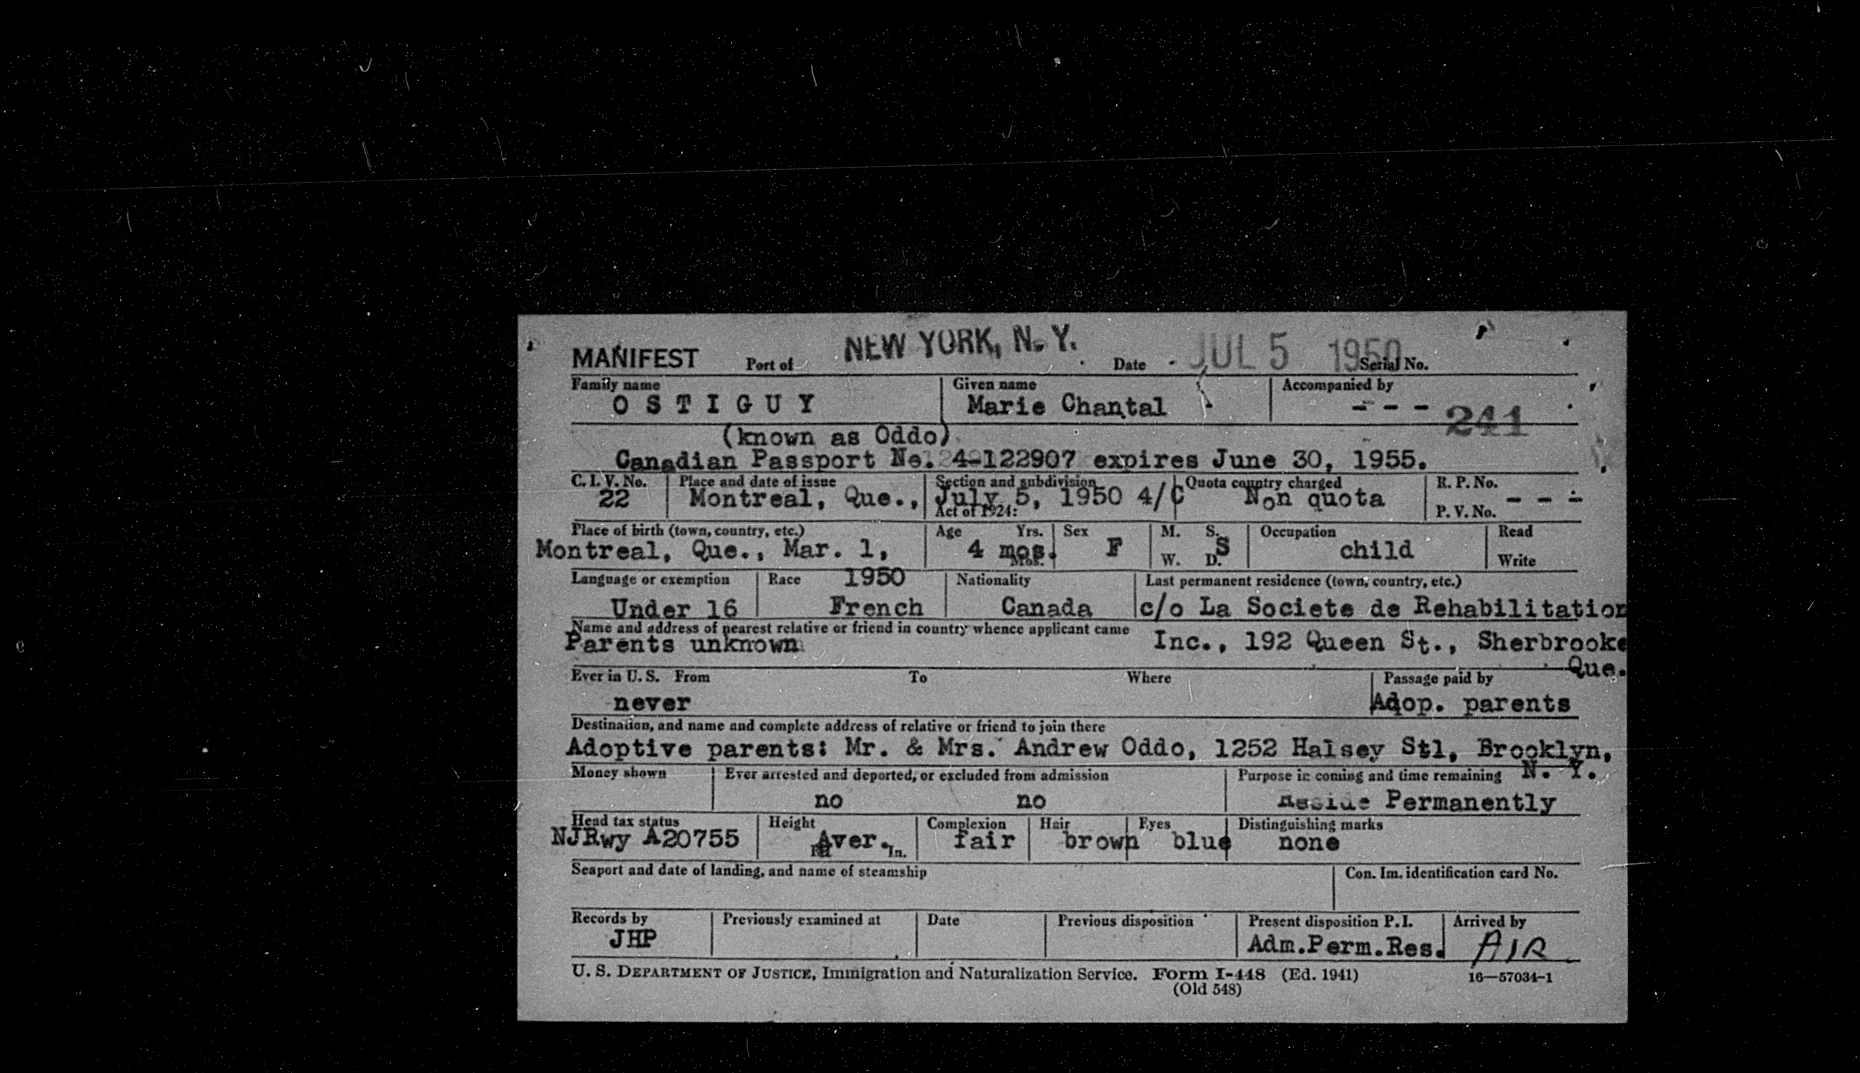 MANIFEST Port of NEW YORK, N. Y. Date JUL 5 1950 Serial No.
Family name Given name Accompanied by
O S T I G U Y Marie Chantal - - - 241
(known as Oddo)
Canadian Passport No. 4-122907 expires June 30, 1955.
C. I. V. No. Place and date of issue Section and subdivision Quota country charged R. P. No.
22 Montreal, Que., July 5, 1950 4/C Non quota - - -
Act of 1924: P. V. No.
Place of birth (town, country, etc.) Age Yrs. Sex M. S. Occupation Read
Montreal, Que., Mar. 1, 4 mos. F S child
Mos. W. D. Write
Language or exemption Race 1950 Nationality Last permanent residence (town, country, etc.)
Under 16 French Canada c/o La Societe de Rehabilitation
Name and address of nearest relative or friend in country whence applicant came
Parents unknown Inc., 192 Queen St., Sherbrooke
Que.
Ever in U. S. From To Where Passage paid by
never Adop. parents
Destination, and name and complete address of relative or friend to join there
Adoptive parents: Mr. & Mrs. Andrew Oddo, 1252 Halsey Stl, Brooklyn,
N. Y.
Money shown Ever arrested and deported, or excluded from admission Purpose in coming and time remaining
no no Reside Permanently
Head tax status Height Complexion Hair Eyes Distinguishing marks
NJRwy A20755 Aver. fair brown blue none
In.
Seaport and date of landing, and name of steamship Con. Im. identification card No.
Records by Previously examined at Date Previous disposition Present disposition P. I. Arrived by
JHP Adm.Perm.Res. AIR
U. S. DEPARTMENT OF JUSTICE, Immigration and Naturalization Service. Form I-448 (Ed. 1941) 16—57034-1
(Old 548)